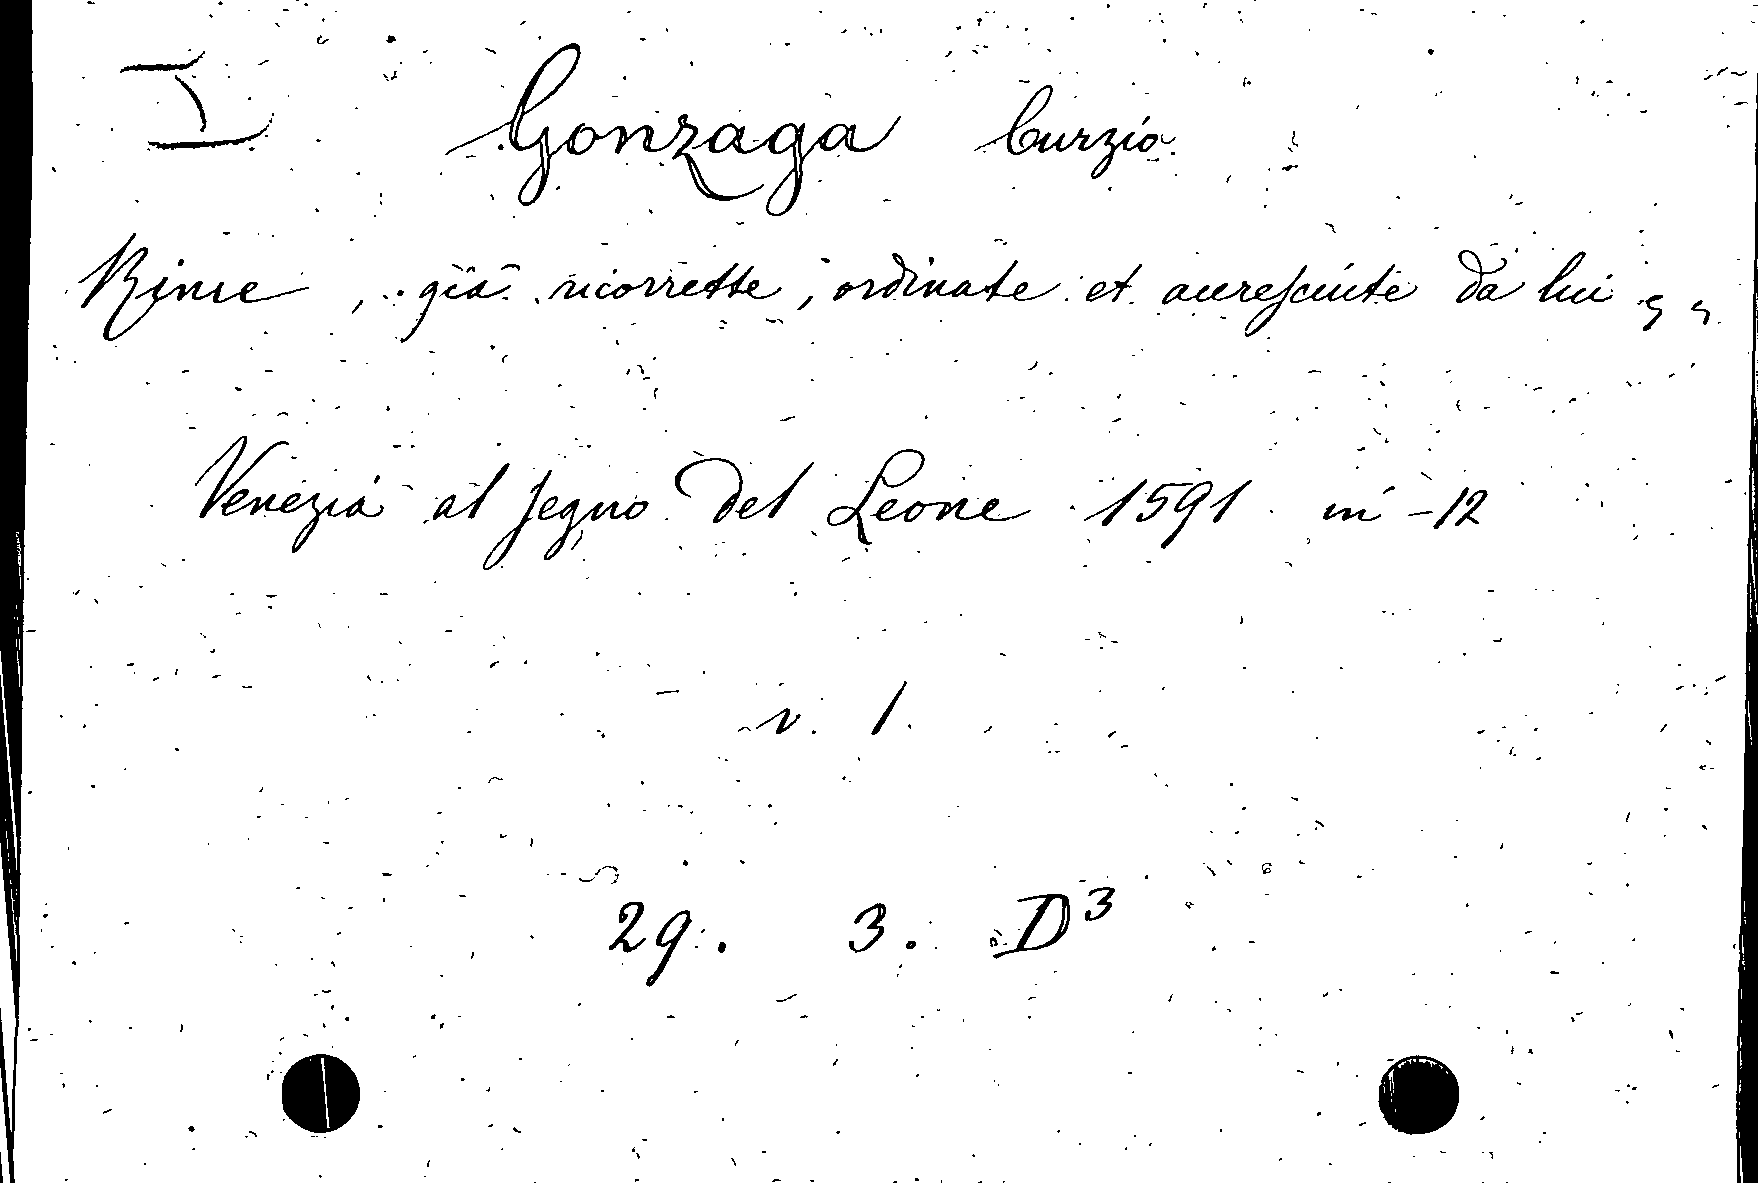 I Gonzaga Curzio
Rime, già ricorrette, ordinate et accresciute da lui , ,
Venezia al segno del Leone 1591 in-12
v. 1.
29. 3. D³